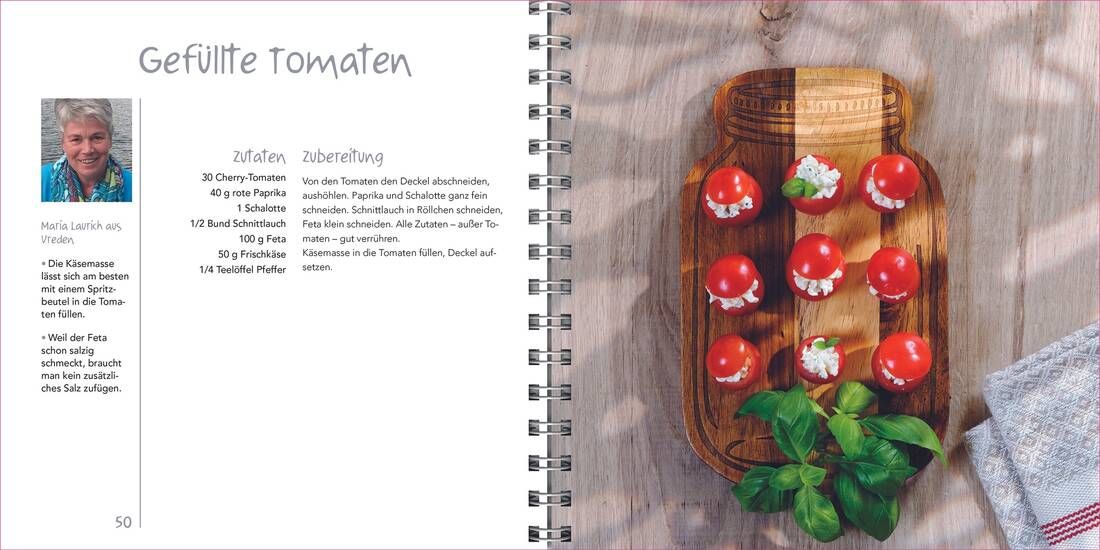 Gefüllte Tomaten
Maria Laurich aus
Vreden
• Die Käsemasse
lässt sich am besten
mit einem Spritz-
beutel in die Toma-
ten füllen.
• Weil der Feta
schon salzig
schmeckt, braucht
man kein zusätzli-
ches Salz zufügen.
Zutaten
30 Cherry-Tomaten
40 g rote Paprika
1 Schalotte
1/2 Bund Schnittlauch
100 g Feta
50 g Frischkäse
1/4 Teelöffel Pfeffer
Zubereitung
Von den Tomaten den Deckel abschneiden,
aushöhlen. Paprika und Schalotte ganz fein
schneiden. Schnittlauch in Röllchen schneiden,
Feta klein schneiden. Alle Zutaten – außer To-
maten – gut verrühren.
Käsemasse in die Tomaten füllen, Deckel auf-
setzen.
50